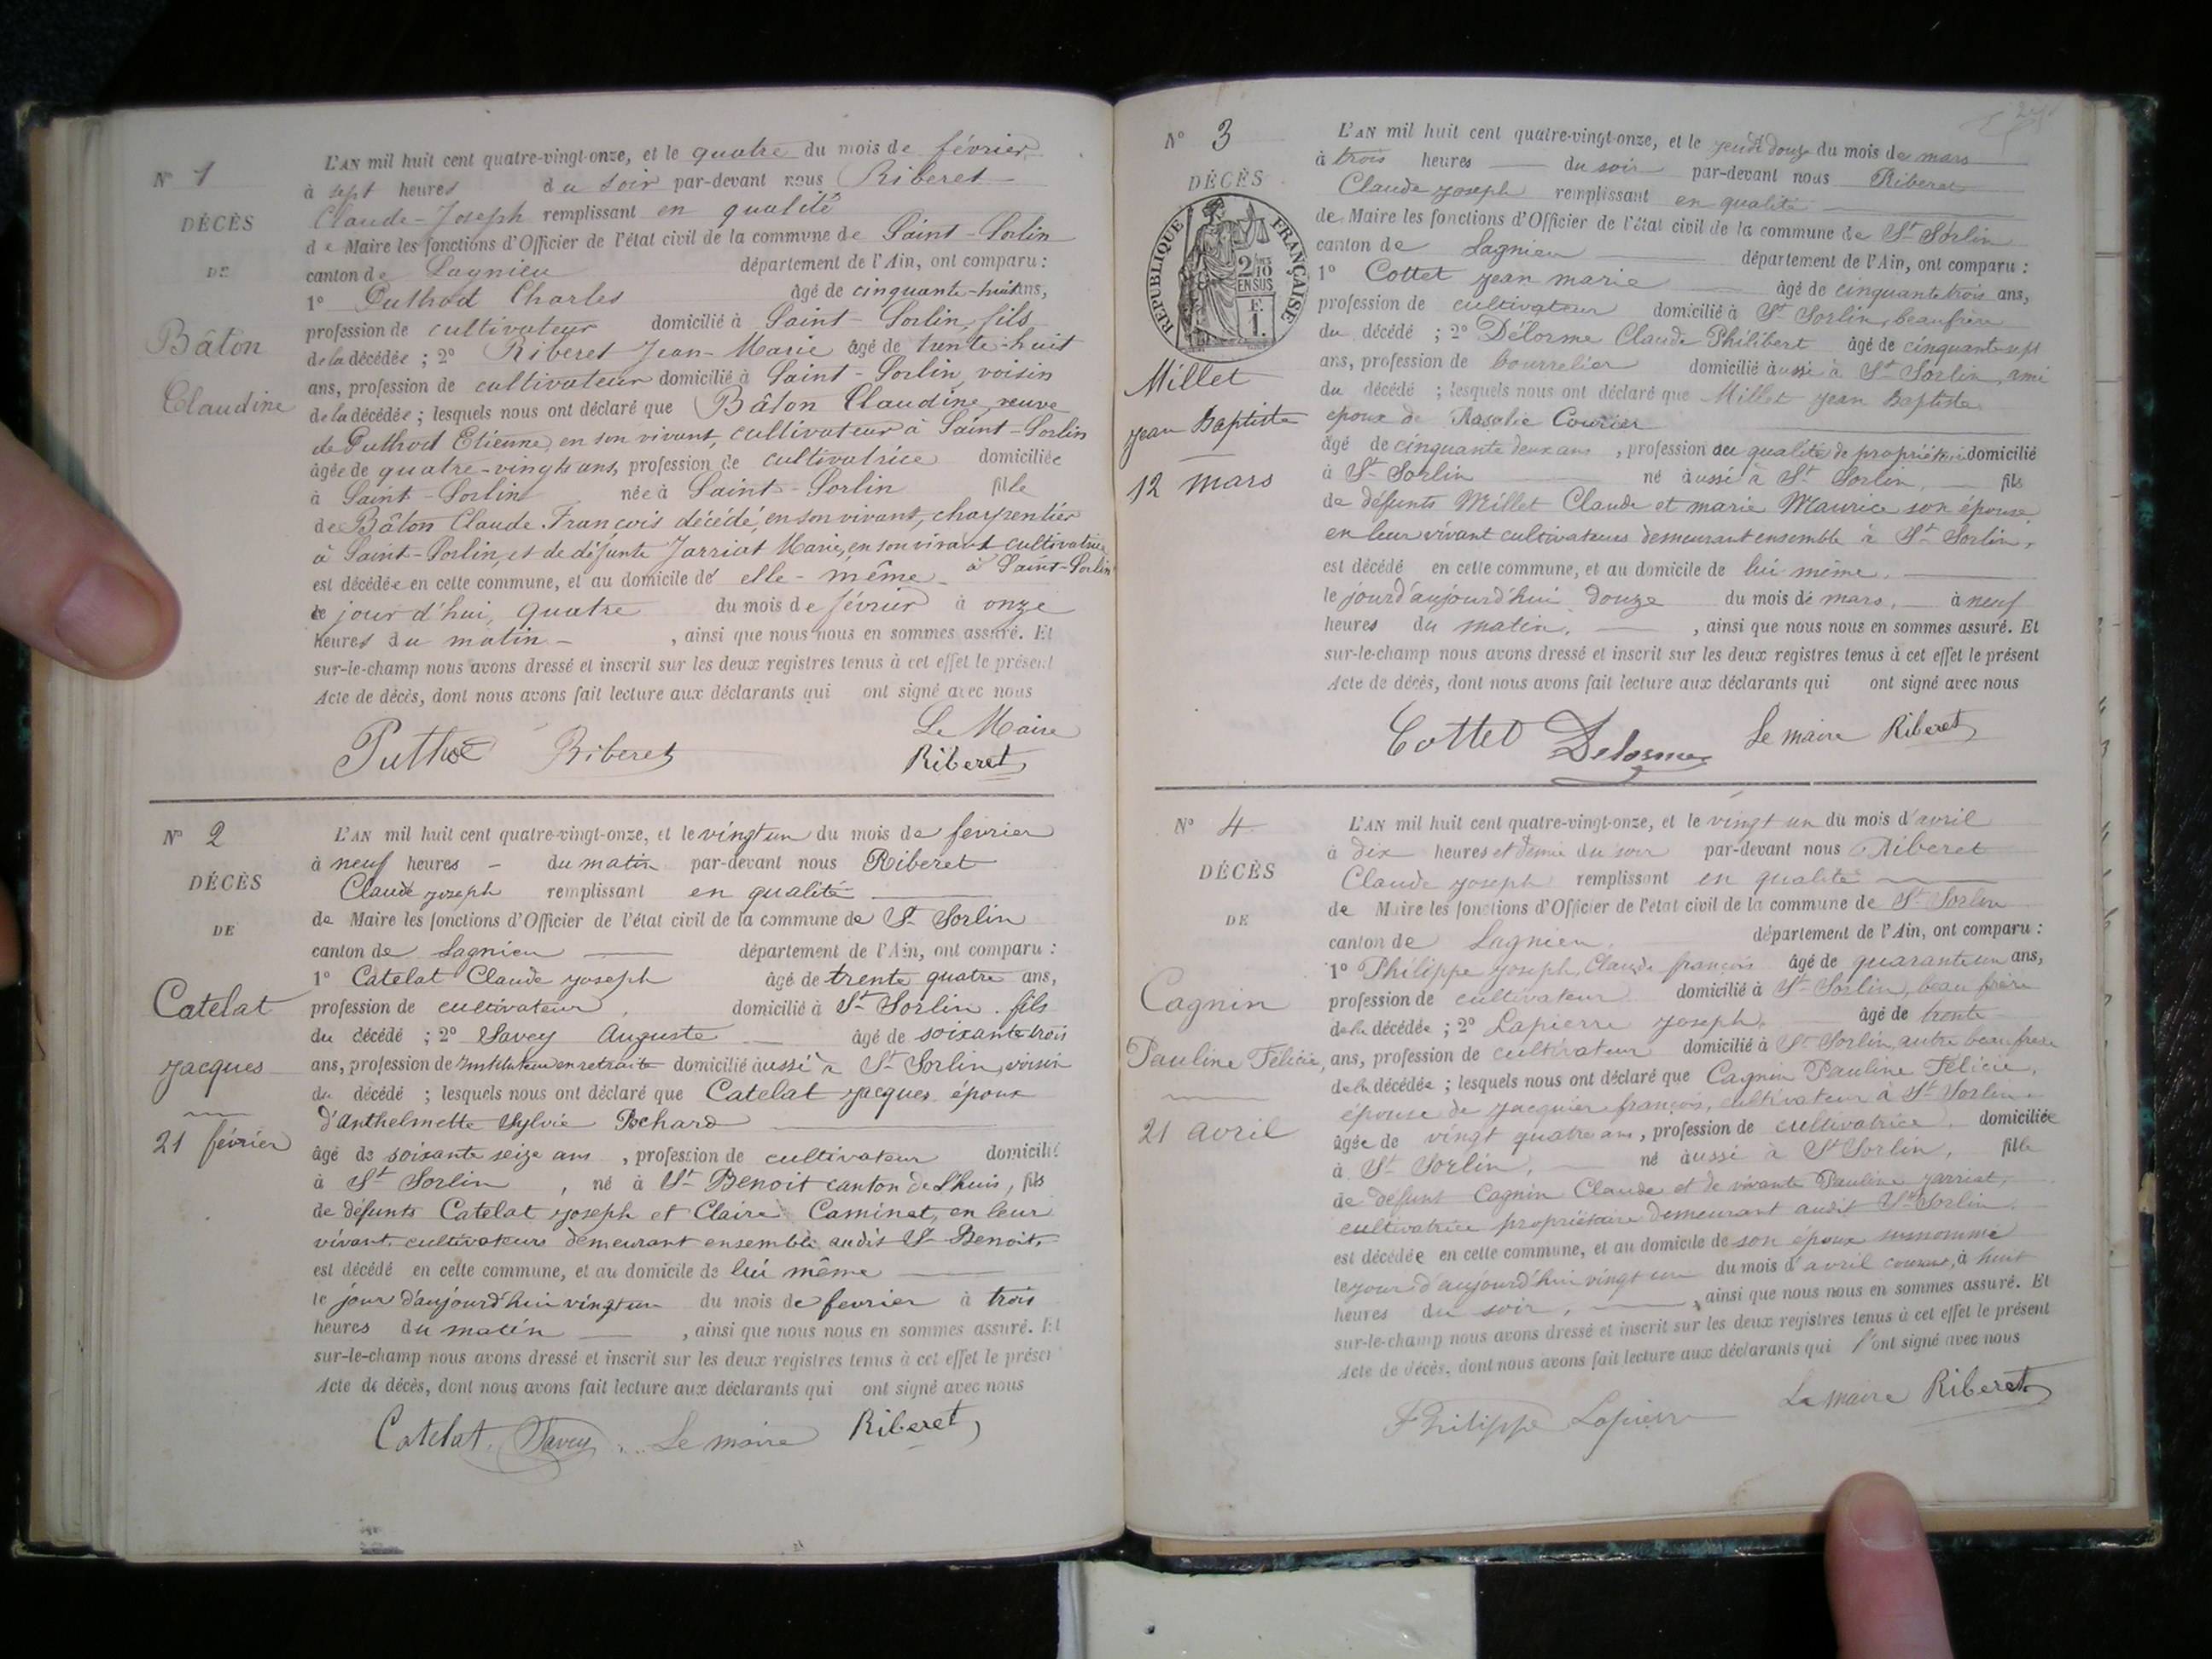 N° 1
DÉCÈS
DE
Bâton
Claudine
L'AN mil huit cent quatre-vingt-onze, et le quatre du mois de février
à sept heures du soir par-devant nous Riberet
Claude-Joseph remplissant en qualité
de Maire les fonctions d'Officier de l'état civil de la commune de Saint-Sorlin
canton de Lagnieu département de l'Ain, ont comparu :
1° Puthod Charles âgé de cinquante-huit ans,
profession de cultivateur domicilié à Saint-Sorlin, fils
de la décédée ; 2° Riberet Jean-Marie âgé de trente-huit
ans, profession de cultivateur domicilié à Saint-Sorlin, voisin
de la décédée ; lesquels nous ont déclaré que Bâton Claudine, veuve
de Puthod Etienne, en son vivant, cultivateur à Saint-Sorlin
âgée de quatre-vingts ans, profession de cultivatrice domiciliée
à Saint-Sorlin née à Saint-Sorlin fille
de Bâton Claude François décédé, en son vivant, charpentier
à Saint-Sorlin, et de défunte Jarriat Marie, en son vivant cultivatrice
à Saint-Sorlin
est décédée en cette commune, et au domicile de elle-même
ce jour d'hui, quatre du mois de février à onze
heures du matin , ainsi que nous nous en sommes assuré. Et
sur-le-champ nous avons dressé et inscrit sur les deux registres tenus à cet effet le présent
Acte de décès, dont nous avons fait lecture aux déclarants qui ont signé avec nous
Le Maire
Puthod Riberet Riberet
N° 2
DÉCÈS
DE
Catelat
Jacques
21 février
L'AN mil huit cent quatre-vingt-onze, et le vingt un du mois de février
à neuf heures du matin par-devant nous Riberet
Claude joseph remplissant en qualité
de Maire les fonctions d'Officier de l'état civil de la commune de St Sorlin
canton de Lagnieu département de l'Ain, ont comparu :
1° Catelat Claude joseph âgé de trente quatre ans,
profession de cultivateur, domicilié à St Sorlin. fils
du décédé ; 2° Savey Auguste âgé de soixante trois
ans, profession de Instituteur en retraite domicilié aussi à St Sorlin, voisin
du décédé ; lesquels nous ont déclaré que Catelat jacques époux
d'Anthelmette Sylvie Pochard
âgé de soixante seize ans, profession de cultivateur domicilié
à St Sorlin, né à St Benoit canton de Lhuis, fils
de défunts Catelat joseph et Claire Caminet, en leur
vivant cultivateurs demeurant ensemble audit St Benoit,
est décédé en cette commune, et au domicile de lui même
le jour d'aujourd'hui vingt un du mois de février à trois
heures du matin , ainsi que nous nous en sommes assuré. Et
sur-le-champ nous avons dressé et inscrit sur les deux registres tenus à cet effet le présen
Acte de décès, dont nous avons fait lecture aux déclarants qui ont signé avec nous
Catelat. Savey Le maire Riberet
N° 3
DÉCÈS
RÉPUBLIQUE FRANÇAISE
2/10
EN SUS
F.
1.
Millet
jean Baptiste
12 mars
L'AN mil huit cent quatre-vingt-onze, et le jeudi douze du mois de mars
à trois heures du soir par-devant nous Riberet
Claude joseph remplissant en qualité
de Maire les fonctions d'Officier de l'état civil de la commune de St Sorlin
canton de Lagnieu département de l'Ain, ont comparu :
1° Cottet jean marie âgé de cinquante trois ans,
profession de cultivateur domicilié à St Sorlin, beau frère
du décédé ; 2° Délorme Claude Philibert âgé de cinquante sept
ans, profession de bourrelier domicilié aussi à St Sorlin, ami
du décédé ; lesquels nous ont déclaré que Millet jean Baptiste
époux de Rosalie Courier
âgé de cinquante deux ans, profession de qualité de propriétaire domicilié
à St Sorlin né aussi à St Sorlin, fils
de défunts Millet Claude et marie Maurice son épouse
en leur vivant cultivateurs demeurant ensemble à St Sorlin,
est décédé en cette commune, et au domicile de lui même,
le jour d'aujourd'hui douze du mois de mars, à neuf
heures du matin, , ainsi que nous nous en sommes assuré. Et
sur-le-champ nous avons dressé et inscrit sur les deux registres tenus à cet effet le présent
Acte de décès, dont nous avons fait lecture aux déclarants qui ont signé avec nous
Cottet Delorme Le maire Riberet
N° 4
DÉCÈS
DE
Cagnin
Pauline Félicie,
21 avril
L'AN mil huit cent quatre-vingt-onze, et le vingt un du mois d'avril
à dix heures et demie du soir par-devant nous Riberet
Claude joseph remplissant en qualité
de Maire les fonctions d'Officier de l'état civil de la commune de St Sorlin
canton de Lagnieu, département de l'Ain, ont comparu :
1° Philippe joseph, Claude françois âgé de quarante un ans,
profession de cultivateur domicilié à St Sorlin, beau frère
de la décédée ; 2° Lapierre joseph, âgé de trente
ans, profession de cultivateur domicilié à St Sorlin, autre beau frère
de la décédée ; lesquels nous ont déclaré que Cagnin Pauline Félicie,
épouse de jacquier françois, cultivateur à St Sorlin
âgée de vingt quatre ans, profession de cultivatrice, domiciliée
à St Sorlin, né aussi à St Sorlin, fille
de défunt Cagnin Claude et de vivante Pauline Jarriat,
cultivatrice propriétaire demeurant audit St Sorlin,
est décédée en cette commune, et au domicile de son époux susnommé
le jour d'aujourd'hui vingt un du mois d'avril courant, à huit
heures du soir, , ainsi que nous nous en sommes assuré. Et
sur-le-champ nous avons dressé et inscrit sur les deux registres tenus à cet effet le présent
Acte de décès, dont nous avons fait lecture aux déclarants qui l'ont signé avec nous
Philippe Lapierre Le maire Riberet